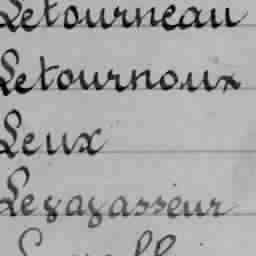 Letourneau
Letournoux
Leux
Legagasseur